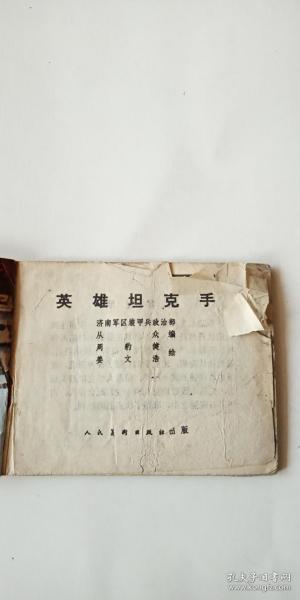 英雄坦克手
济南军区装甲兵政治部
从众编
周豹健
姜文浩绘
人民美术出版社出版
孔夫子旧书网